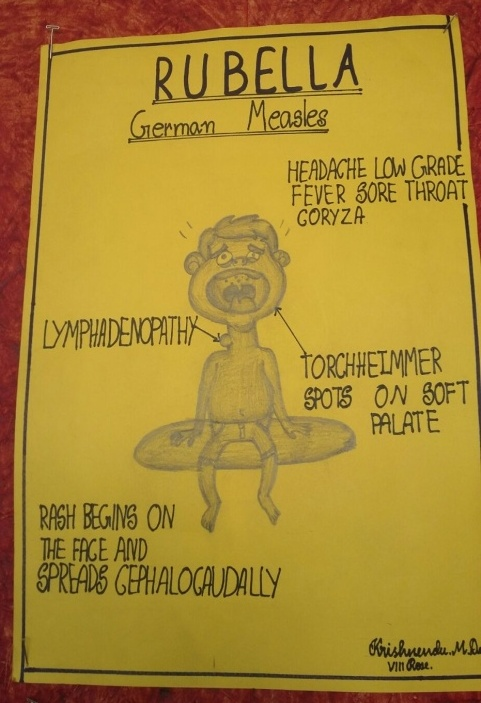 RUBELLA
German Measles
HEADACHE LOW GRADE
FEVER SORE THROAT
CORYZA
LYMPHADENOPATHY
TORCHHEIMMER
SPOTS ON SOFT
PALATE
RASH BEGINS ON
THE FACE AND
SPREADS CEPHALOCAUDALLY
Krishnendu.M.D
VIII Rose.